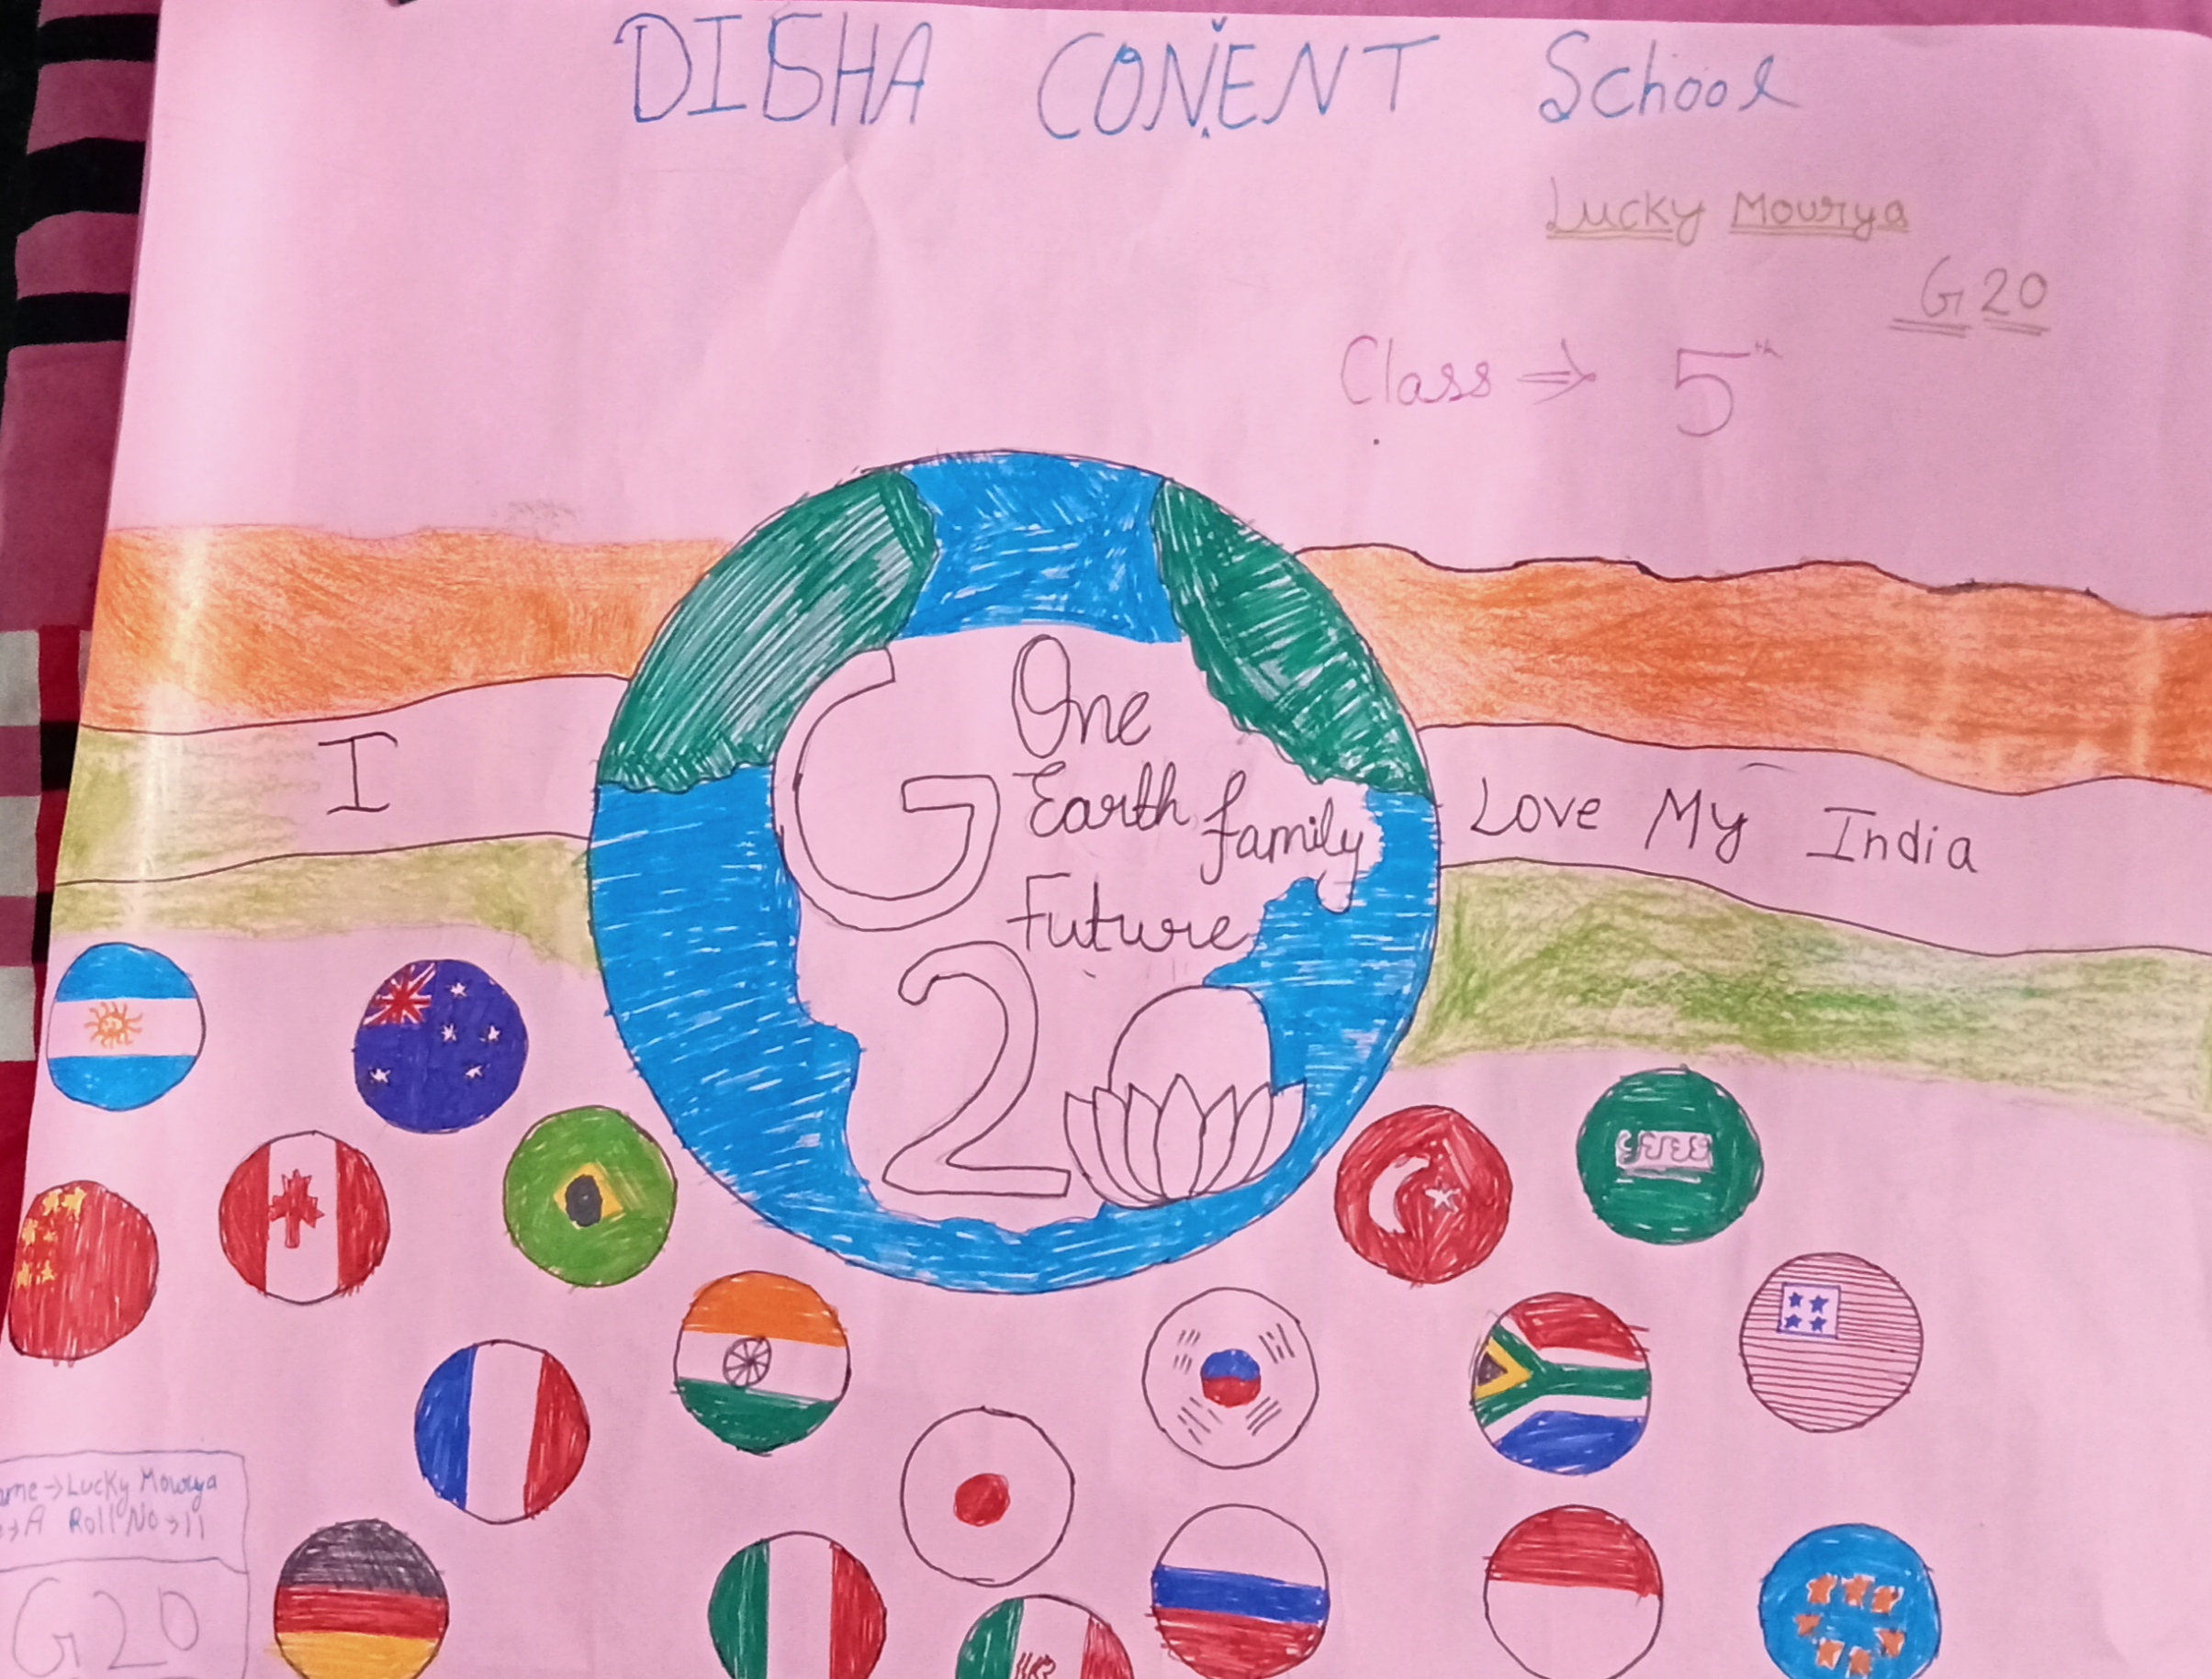 DISHA CONVENT School
Lucky Mourya
G20
Class ⇒ 5th
G
One
Earth family
Future
20
I Love My India
Name → Lucky Mourya
→ A Roll No → 11
G20